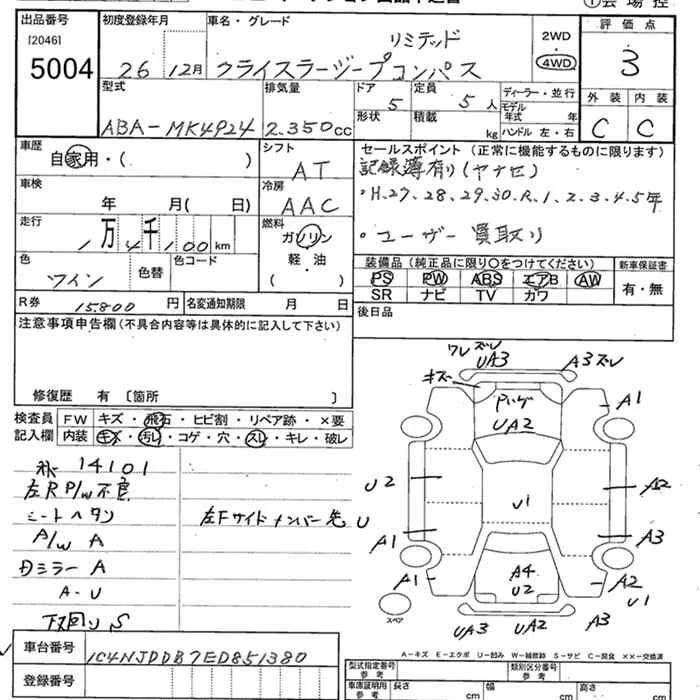 出品番号 初度登録年月 車名・グレード 評価点
[2046]
5004
26 12月 クライスラージープコンパス リミテッド
2WD
・
4WD
3
型式 排気量 ドア 定員 ディーラー・並行 外装 内装
ABA-MK4924 2.350cc 5 5人
モデル年式 年
形状 積載 kg ハンドル 左・右
C C
車歴 シフト セールスポイント(正常に機能するものに限ります)
自家用・( ) AT 記録簿有り(ヤナセ)
車検 冷房
年 月( 日) AAC ・H.27、28、29、30、R、1、2、3、4、5年
走行 燃料
1万4千100km ガソリン ・ユーザー買取り
軽・油
色 色替 色コード ( )
ワイン
装備品(純正品に限り○をつけてください) 新車保証書
PS PW ABS エアB AW 有・無
SR ナビ TV カワ
R券 15.800円 名変通知期限 月 日
後日品
注意事項申告欄(不具合内容等は具体的に記入して下さい)
修復歴 有 〔箇所 〕
検査員 FW キズ・飛石・ヒビ割・リペア跡・×要
記入欄 内装 キズ・汚レ・コゲ・穴・スレ・キレ・破レ
14101
左R P/W不良
シートヘタリ 左Fサイドメンバー先 U
A/W A
ミラー A
A-U
下回りS
ワレズレ
UA3 A3ズレ
キズ
A1
UA2
U2 U1 A2
A1 A3
A1 A4 A2
U2 U1
スペア UA3 UA2 A3
A-キズ E-エクボ U-凹み W-補修跡 S-サビ C-腐食 ××-交換済
車台番号 1C4NJDDB7ED851380
登録番号
型式指定番号 参考 類別区分番号 参考
車庫証明用 参考 長さ cm 幅 cm 高さ cm